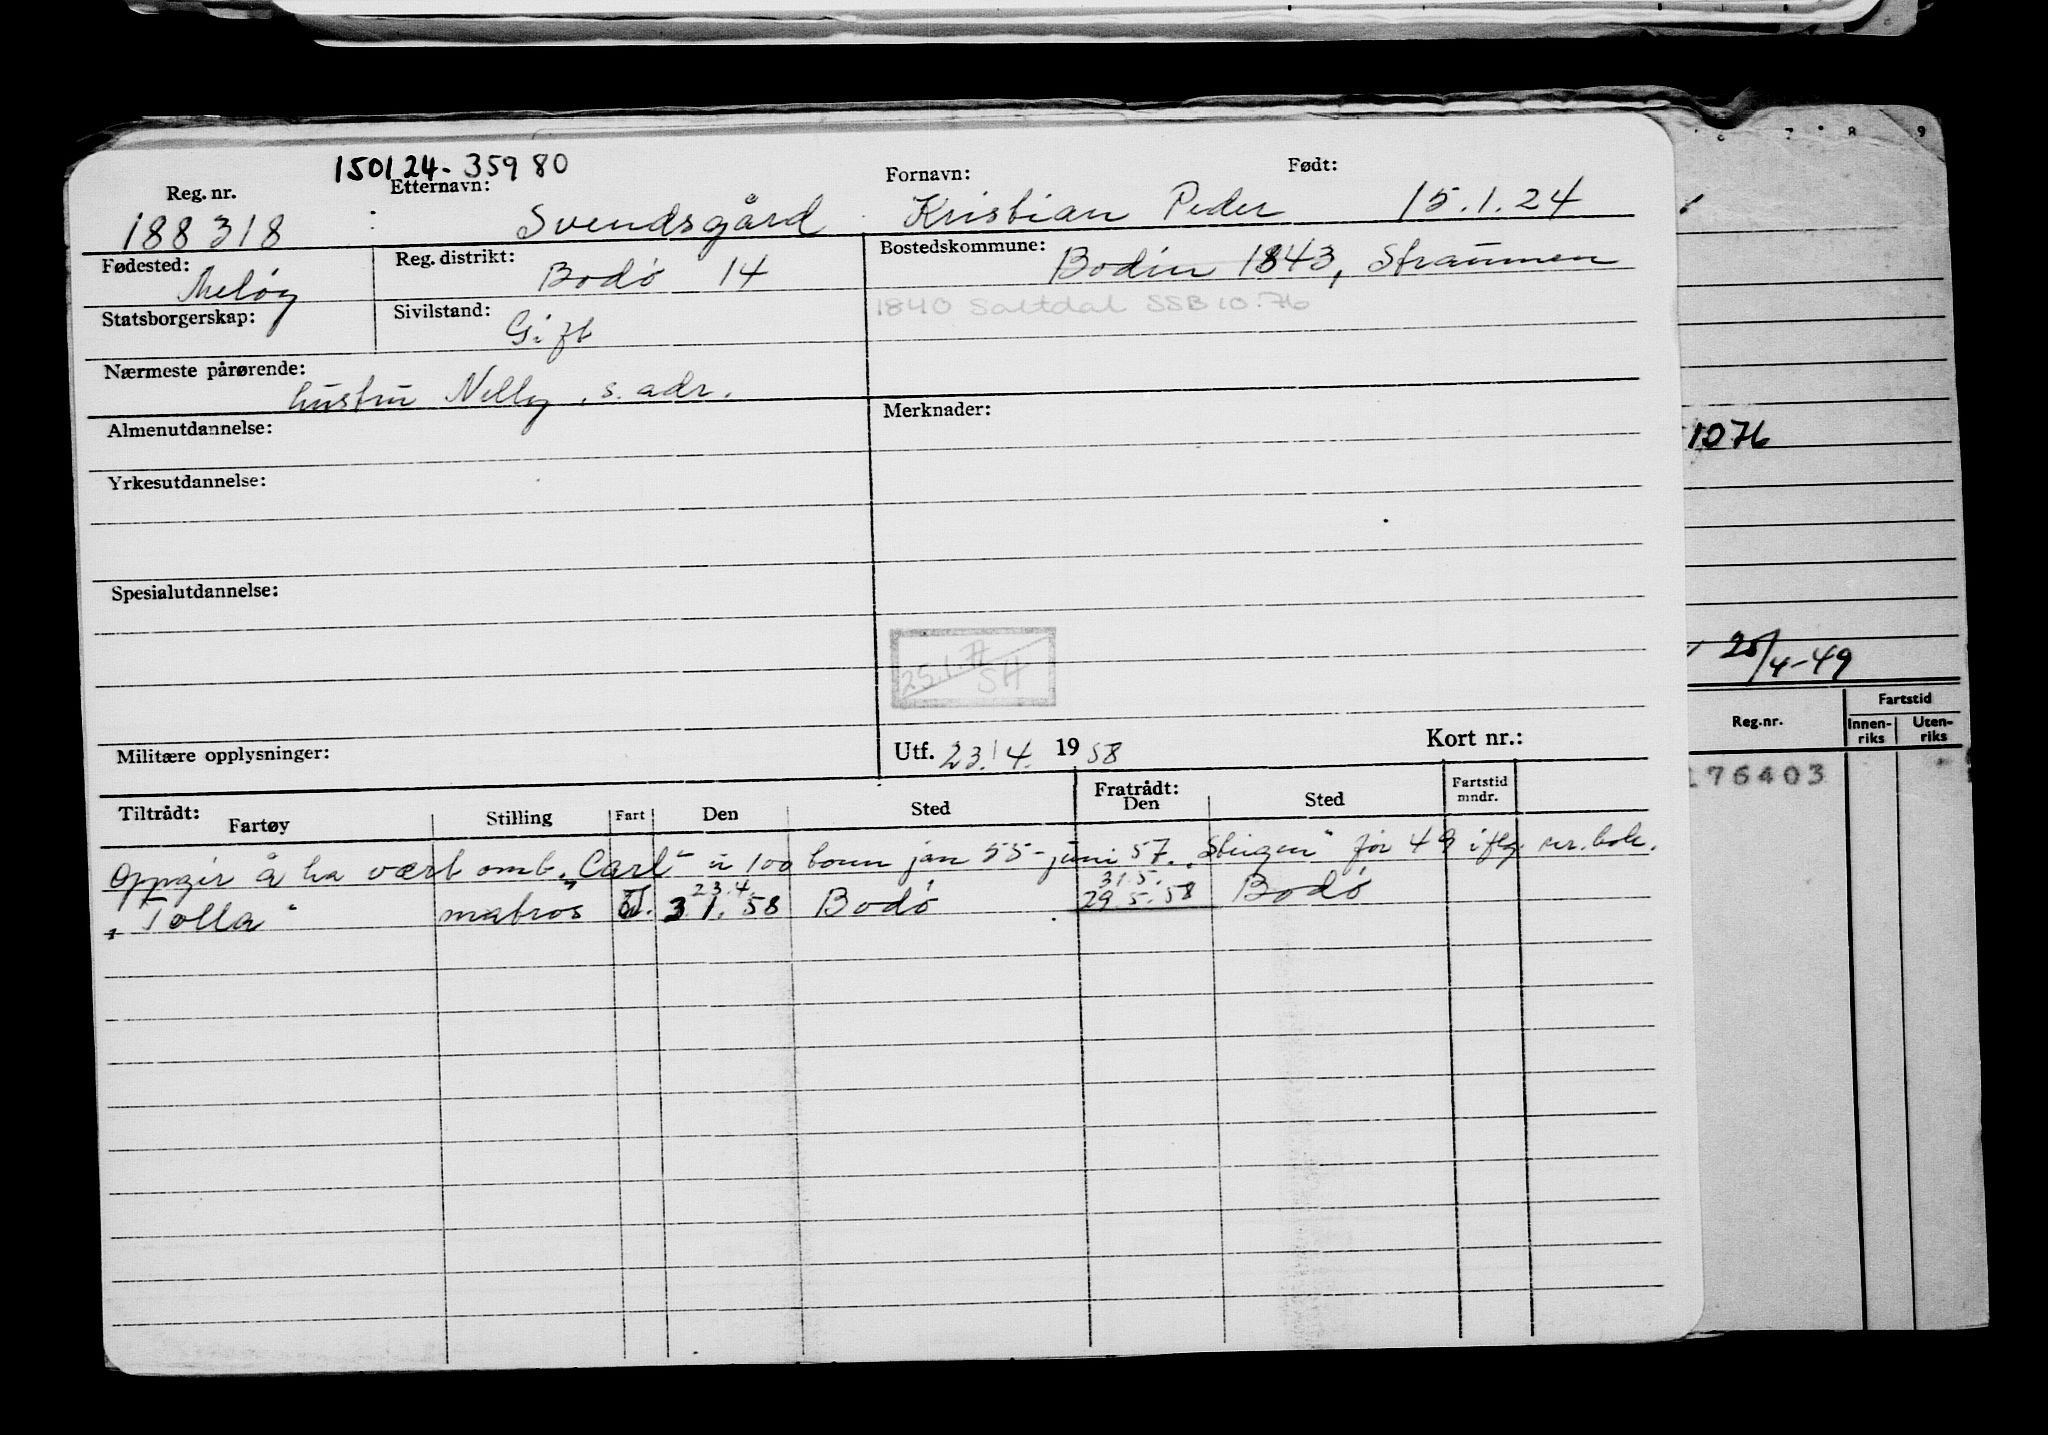 150124-35980
Reg. nr. Etternavn: Fornavn: Født:
188318 Svendsgård Kristian Peder 15.1.24
Fødested: Reg. distrikt: Bostedskommune:
Meløy Bodø 14 Bodin 1843, Straumen
Statsborgerskap: Sivilstand: 1840 Saltdal SSB 10.76
Gift
Nærmeste pårørende:
hustru Nelly, s. adr.
Almenutdannelse: Merknader:
Yrkesutdannelse:
Spesialutdannelse:
25.1.
SH
Militære opplysninger: Utf. 23/4. 1958 Kort nr.:
Tiltrådt: Fratrådt: Fartstid
Fartøy Stilling Fart Den Sted Den Sted mndr.
Oppgir å ha vært omb. "Carl" u 100 tonn jan 55 - juni 57. "Steigen" før 49 iflg.
23.4. 31.5.
"Tolla" matros 3.1.58 Bodø 29.5.58 Bodø
6 7 8 9
1076
25/4-49
Reg.nr. Fartstid
Innen-riks Uten-riks
176403